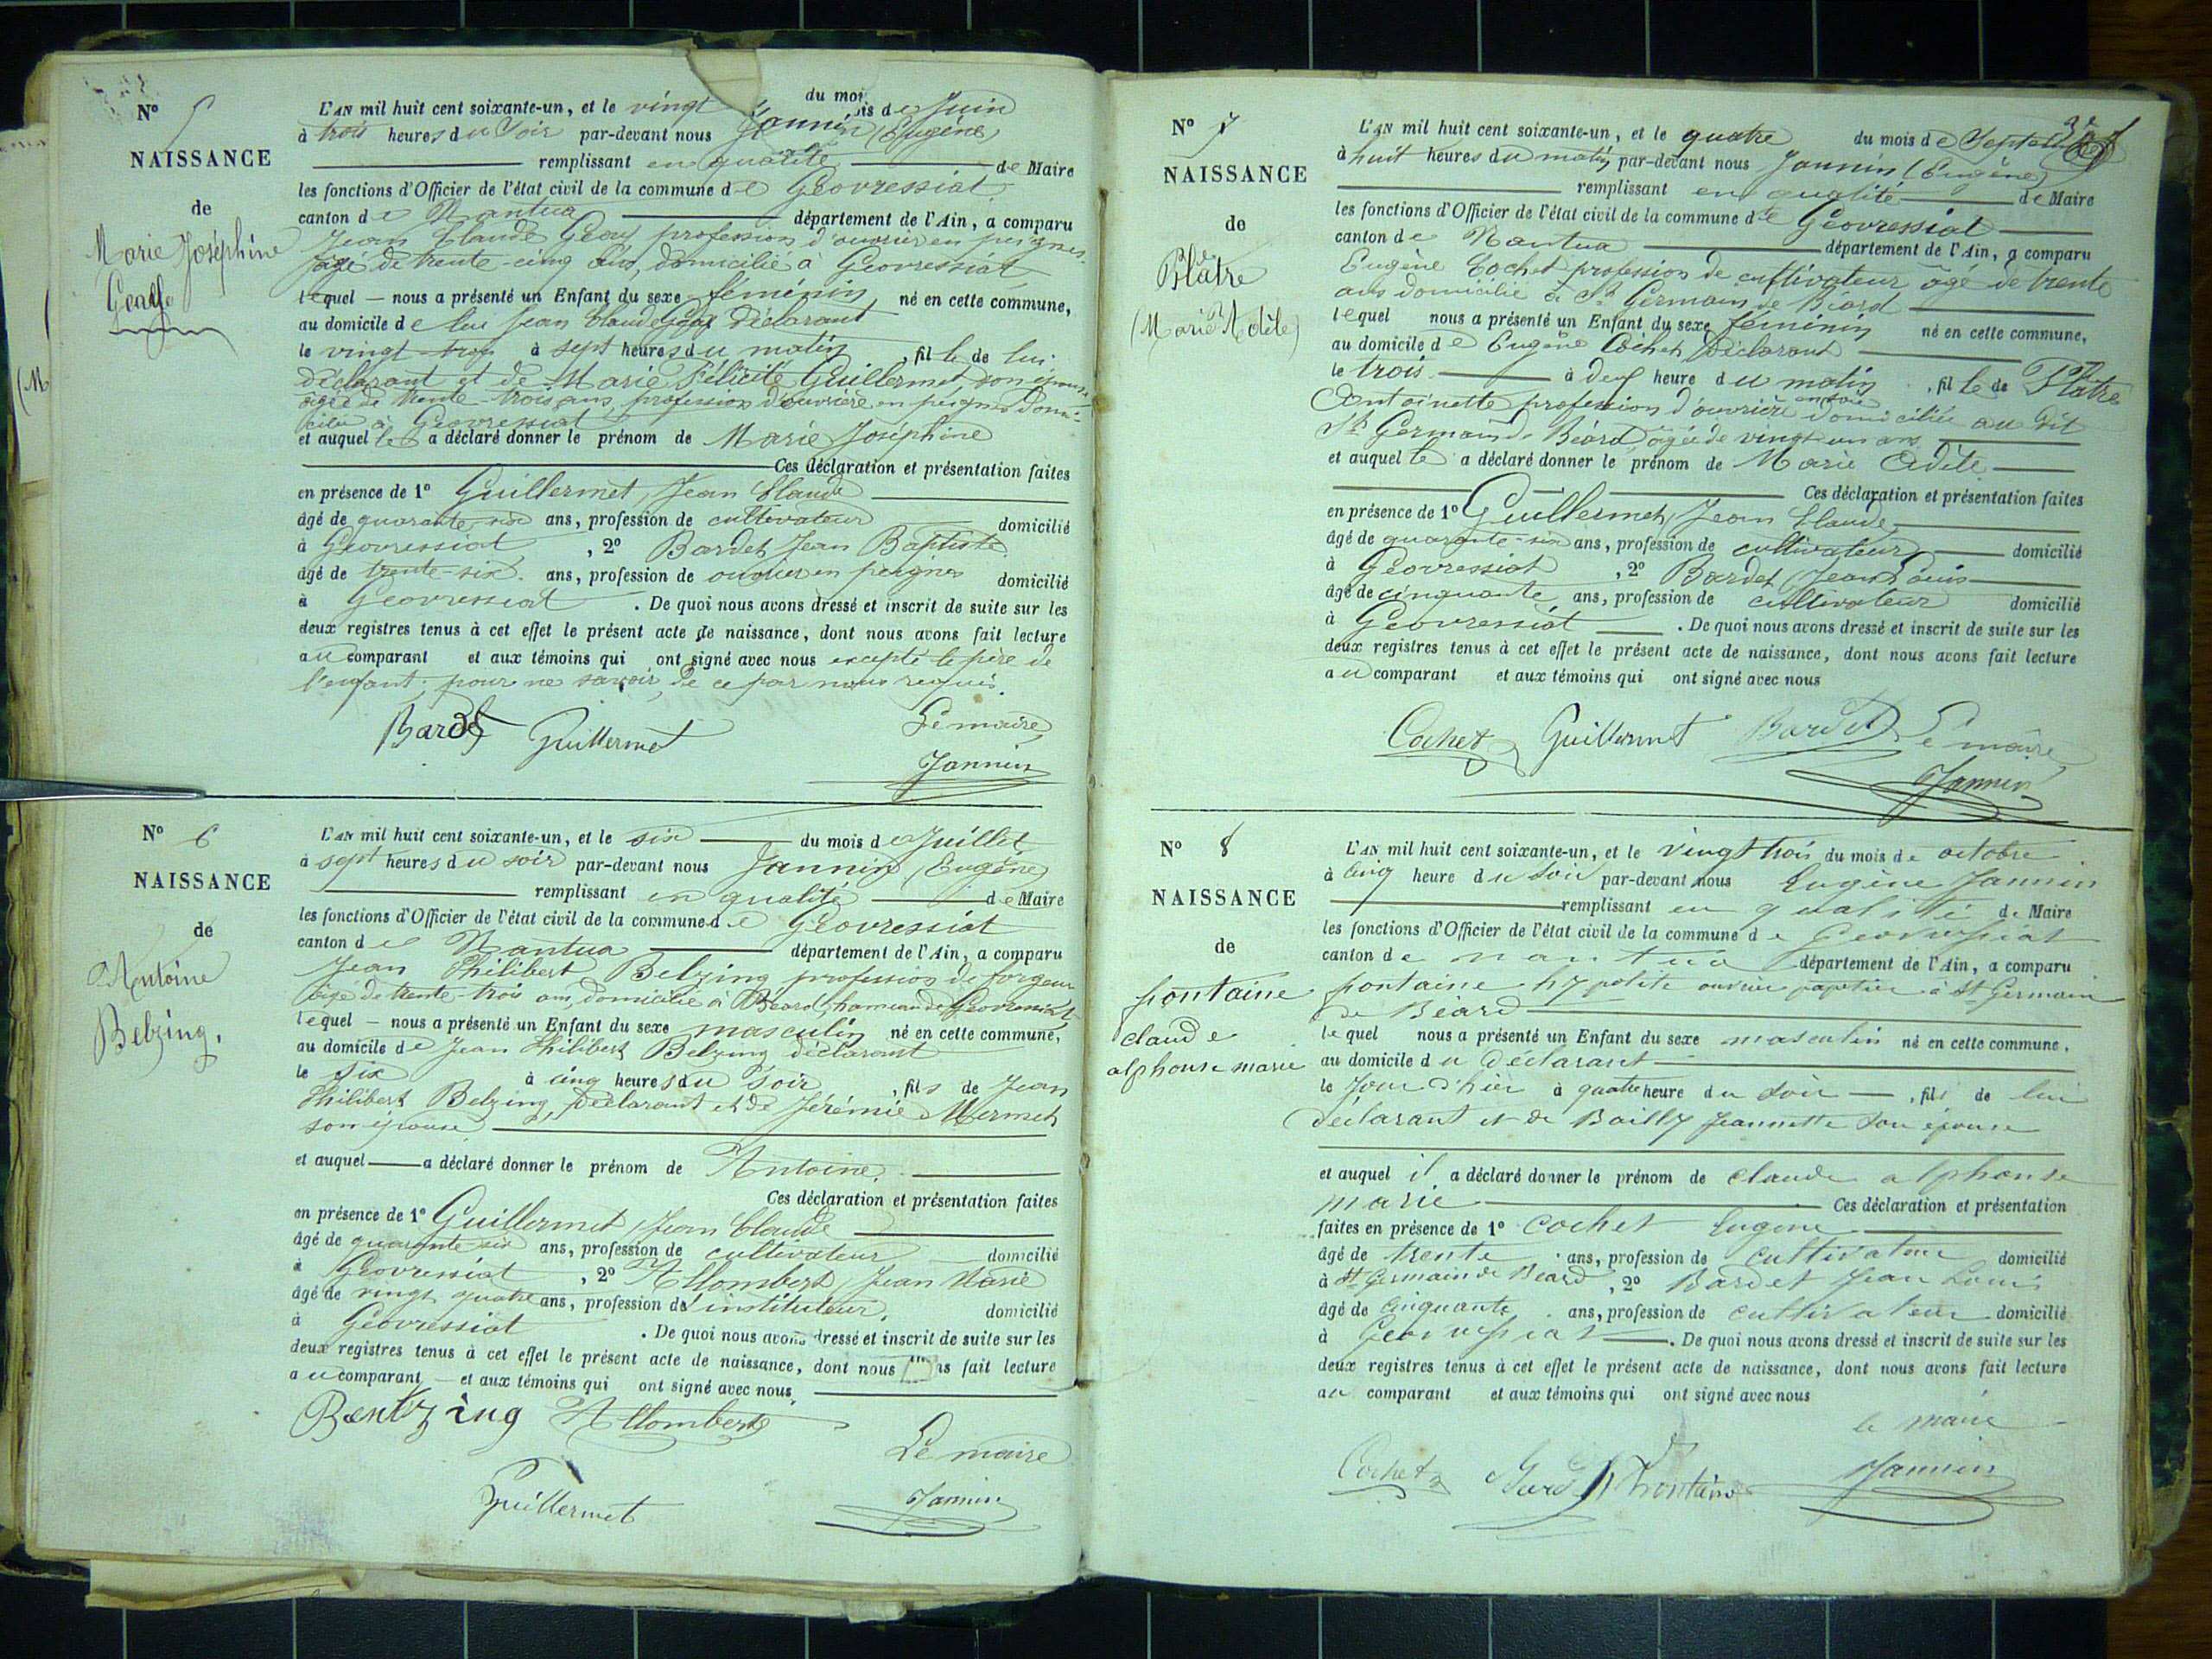 Nº 5
NAISSANCE
de
Marie Joséphine
L'AN mil huit cent soixante-un, et le vingt du mois de Juin
à trois heures du Soir par-devant nous Jannin (Eugène)
remplissant en qualité de Maire
les fonctions d'Officier de l'état civil de la commune de Géovressiat
canton de Nantua département de l'Ain, a comparu
Jean Claude profession d'ouvrier en peignes
âgé de trente-cinq ans, domicilié à Géovressiat
lequel nous a présenté un Enfant du sexe féminin né en cette commune,
au domicile de lui Jean Claude déclarant
le vingt trois à sept heures du matin, fille de lui
déclarant et de Marie Félicité Guillermet son épouse
âgée de trente-trois ans, profession d'ouvrière en peignes domi-
ciliée à Géovressiat
et auquel le a déclaré donner le prénom de Marie Joséphine
Ces déclaration et présentation faites
en présence de 1º Guillermet, Jean Claude
âgé de quarante-six ans, profession de cultivateur domicilié
à Géovressiat, 2º Bardet Jean Baptiste
âgé de trente-six. ans, profession de ouvrier en peignes domicilié
à Géovressiat. De quoi nous avons dressé et inscrit de suite sur les
deux registres tenus à cet effet le présent acte de naissance, dont nous avons fait lecture
au comparant et aux témoins qui ont signé avec nous excepté le père de
l'enfant, pour ne savoir, de ce par nous requis.
Bardet Guillermet Le maire
Jannin
Nº 6
NAISSANCE
de
Antoine
Belzing.
L'AN mil huit cent soixante-un, et le six du mois de Juillet
à sept heures du soir par-devant nous Jannin (Eugène)
remplissant en qualité de Maire
les fonctions d'Officier de l'état civil de la commune de Géovressiat
canton de Nantua département de l'Ain, a comparu
Jean Philibert Belzing profession de forgeur
âgé de trente-trois ans, domicilié à Béard, hameau de Géovressiat
lequel nous a présenté un Enfant du sexe masculin né en cette commune,
au domicile de Jean Philibert Belzing déclarant
le six à cinq heures du soir, fils de Jean
Philibert Belzing, déclarant et de Jérémie Mermet
son épouse
et auquel a déclaré donner le prénom de Antoine.
Ces déclaration et présentation faites
en présence de 1º Guillermet, Jean Claude
âgé de quarante six ans, profession de cultivateur domicilié
à Géovressiat, 2º Allombert, Jean Marie
âgé de vingt quatre ans, profession d'instituteur, domicilié
à Géovressiat. De quoi nous avons dressé et inscrit de suite sur les
deux registres tenus à cet effet le présent acte de naissance, dont nous avons fait lecture
au comparant et aux témoins qui ont signé avec nous.
Bentzing Allombert
Le maire
Guillermet Jannin
Nº 7
NAISSANCE
de
Platre
(Marie Adèle)
L'AN mil huit cent soixante-un, et le quatre du mois de Septembre
à huit heures du matin par-devant nous Jannin (Eugène)
remplissant en qualité de Maire
les fonctions d'Officier de l'état civil de la commune de Géovressiat
canton de Nantua département de l'Ain, a comparu
Eugène Cochet profession de cultivateur âgé de trente
ans domicilié à St Germain de Béard
lequel nous a présenté un Enfant du sexe féminin né en cette commune,
au domicile de Eugène Cochet, déclarant
le trois à deux heure du matin, fille de Platre
Antoinette profession d'ouvrière en soie domiciliée au dit
St Germain de Béard âgée de vingt-un ans
et auquel le a déclaré donner le prénom de Marie Adèle
Ces déclaration et présentation faites
en présence de 1º Guillermet, Jean Claude
âgé de quarante-six ans, profession de cultivateur domicilié
à Géovressiat, 2º Bardet (Jean Louis
âgé de cinquante ans, profession de cultivateur domicilié
à Géovressiat. De quoi nous avons dressé et inscrit de suite sur les
deux registres tenus à cet effet le présent acte de naissance, dont nous avons fait lecture
au comparant et aux témoins qui ont signé avec nous
Cochet Guillermet Bardet Le maire
Jannin
Nº 8
NAISSANCE
de
fontaine
claude
alphonse marie
L'AN mil huit cent soixante-un, et le vingt trois du mois de octobre
à cinq heure du soir par-devant nous Eugène Jannin
remplissant en qualité de Maire
les fonctions d'Officier de l'état civil de la commune de Geovressiat
canton de nantua département de l'Ain, a comparu
fontaine hypolite ouvrier papetier à St Germain
de Béard
lequel nous a présenté un Enfant du sexe masculin né en cette commune,
au domicile du déclarant
le jour d'hier à quatre heure du soir, fils de lui
déclarant et de Bailly Jeannette son épouse
et auquel il a déclaré donner le prénom de claude alphonse
marie Ces déclaration et présentation
faites en présence de 1º Cochet Eugène
âgé de trente ans, profession de cultivateur domicilié
à St Germain de Béard, 2º Bardet Jean Louis
âgé de cinquante ans, profession de cultivateur domicilié
à Geovressiat. De quoi nous avons dressé et inscrit de suite sur les
deux registres tenus à cet effet le présent acte de naissance, dont nous avons fait lecture
au comparant et aux témoins qui ont signé avec nous
le maire
Cochet Bardet fontaine Jannin